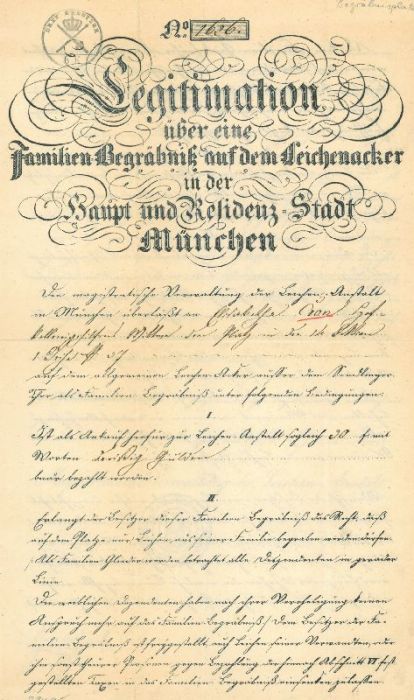 Begräbnisplatz
No. 1626.
Legitimation
über eine
Familien-Begräbniß auf dem Leichenacker
in der
Haupt und Residenz-Stadt
München
Die magistratische Verwaltung der Leichen-Anstalt
in München überläßt an Elisabetha
Wittwe den Platz in der 14. Section
1. Reihe № 37
auf dem allgemeinen Leichen-Acker außer dem Sendlinger
Thor als Familien-Begräbniß unter folgenden Bedingungen:
I
Ist als Ankauf hierfür zur Leichen-Anstalt sogleich 30 f mit
Worten Dreißig Gulden
baar bezahlt worden.
II
Erlangt der Besitzer dieser Familien-Begräbniß das Recht, daß
auf dem Platze nur Leichen aus seiner Familie begraben werden dürfen.
Als Familien Glieder werden betrachtet alle Deszendenten in gerader
Linie.
Die weiblichen Deszendenten haben nach ihrer Verehelichung keinen
Anspruch mehr auf das Familien-Begräbniß. Dem Besitzer der Fa-
milien-Begräbniß ist freygestellt, auch Leichen seiner Verwandten, oder
ihm sonst theurer Personen gegen Bezahlung der hernach Abschnitt VI fest
gestellten Taxen in das Familien-Begräbniß einsenken zu lassen.